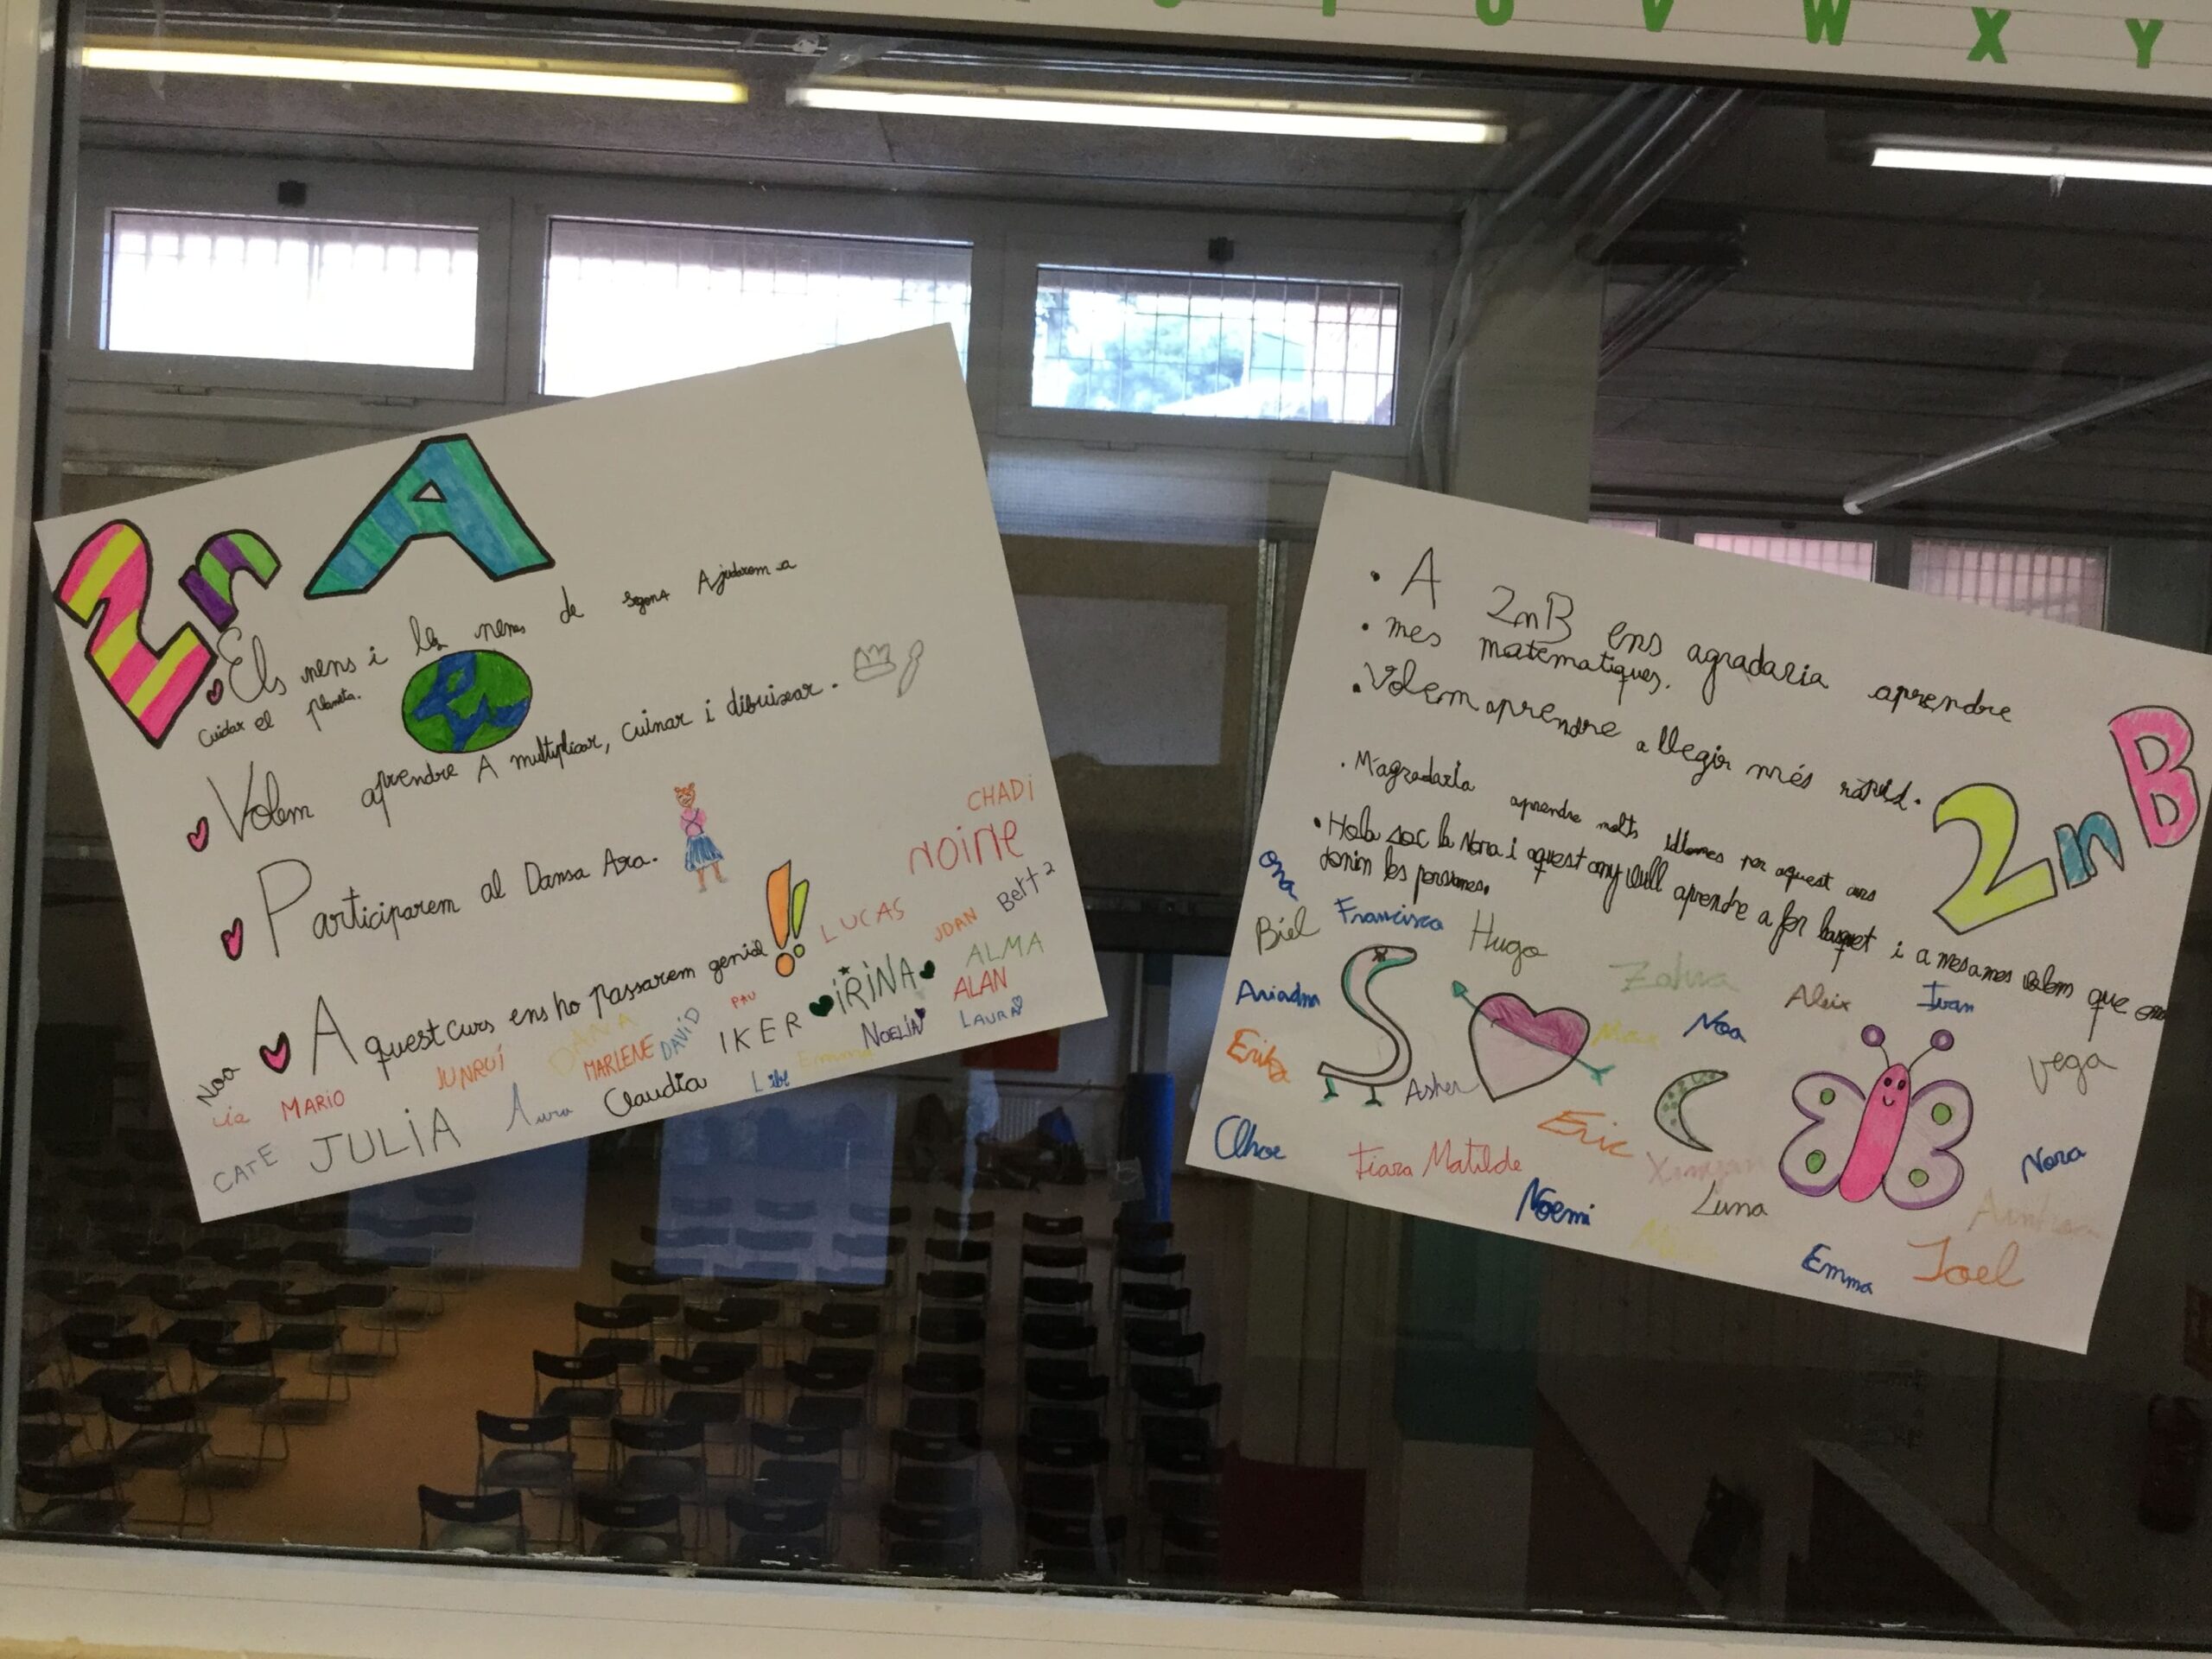 U V W X Y
2n A
Els nens i les nenes de segona Ajudarem a
cuidar el planeta.
Volem aprendre A multiplicar, cuinar i dibuixar.
Participarem al Dansa Ara.
Aquest curs ens ho passarem genial!!
CHADI
NOINE
LUCAS
JOAN
Bett 2
ALMA
IRINA
ALAN
PAU
IKER
NOELIA
LAURA
DANA
DAVID
MARLENE
JUNRUI
Emma
Noa
Lia
MARIO
Aura
Claudia
CATE
JULIA
2n B
· A 2nB ens agradaria aprendre
· mes matematiques.
· Volem aprendre a llegir més ràpid.
· M'agradaria aprendre molts idiomes per aquest curs
· Hola soc la Nora i aquest any vull aprendre a fer basquet i a mes a mes volem que ens
donin les persones.
Ona
Biel
Francisco
Hugo
Zahra
Aleix
Ivan
Ariadna
Noa
Vega
Erika
Asher
Eric
Clhoe
Tiara
Matilde
Nora
Noemi
Luna
Emma
Joel